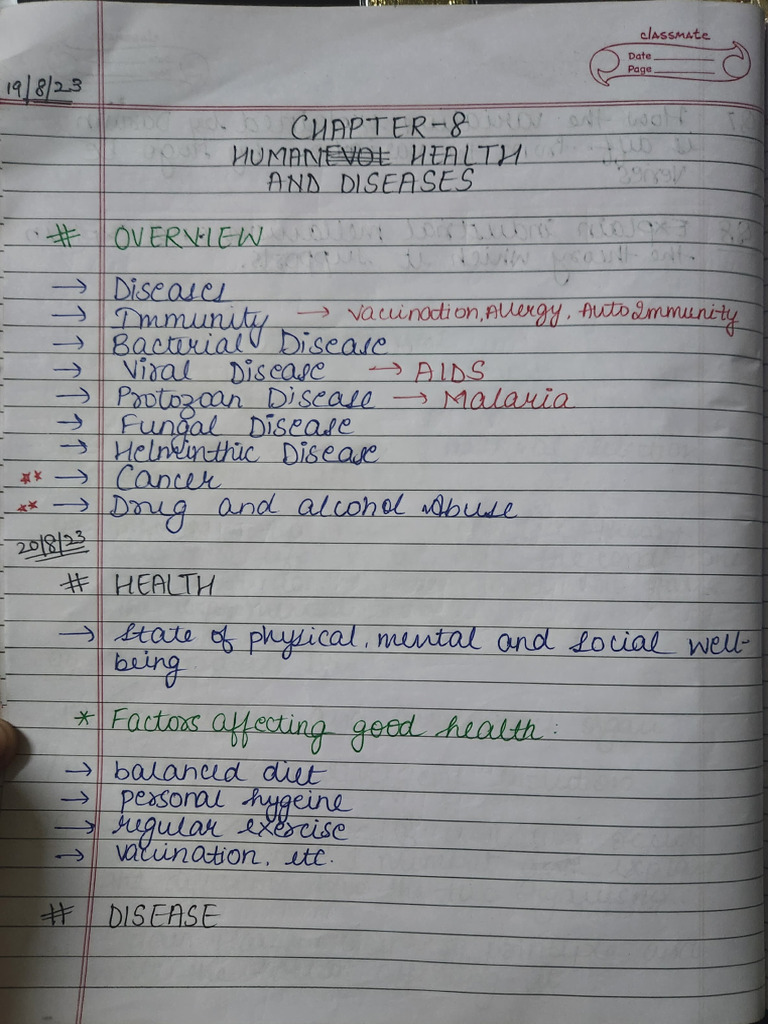 classmate
Date
Page
19/8/23
CHAPTER-8
HUMAN HEALTH
AND DISEASES
# OVERVIEW
→ Diseases
→ Immunity → Vaccination, Allergy, Auto Immunity
→ Bacterial Disease
→ Viral Disease → AIDS
→ Protozoan Disease → Malaria
→ Fungal Disease
→ Helminthic Disease
** → Cancer
** → Drug and alcohol Abuse
20/8/23
# HEALTH
→ State of physical, mental and social well-
being
* Factors affecting good health :
→ balanced diet
→ personal hygeine
→ regular exercise
→ vaccination, etc.
# DISEASE